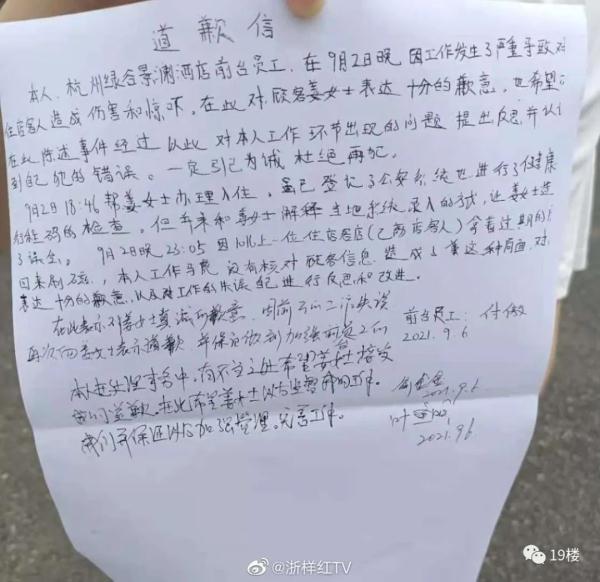 道歉信
本人,杭州绿谷景澜酒店前台员工,在9月2日晚因工作发生了严重导致对
住店客人造成伤害和惊吓。在此对顾客姜女士表达十分的歉意。也希望
在此陈述事件经过 从此对本人工作环节出现的问题 提出反思并认
到自己犯的错误。一定引已为诫 杜绝再犯。
9月2日18:46帮姜女士办理入住,虽已登记了公安系统也进行了健康
码的检查。但并未和姜女士解释当地系统录入的方式,让姜女士造
了误会。 9月2日晚23:05因 上一位住店客店(已离店客人)拿着过期的
回来制,本人工作失责 没有核对顾客信息 造成了 这种局面,对
表达十分的歉意,以及对工作的失误 进行反思和改进。
在此表示对姜女士真诚的歉意,因前 失误
再次向姜女士表示道歉,并保证做到加强前台工作
前台员工:付傲
2021.9.6
本店处理事务中,有不妥之处希望姜女士接受
我们道歉,在此希望姜女士以后监督 工作。
我们并保证以后加强管理。完善工作。
2021.9.6
叶
2021.9.6
@浙样红TV
19楼